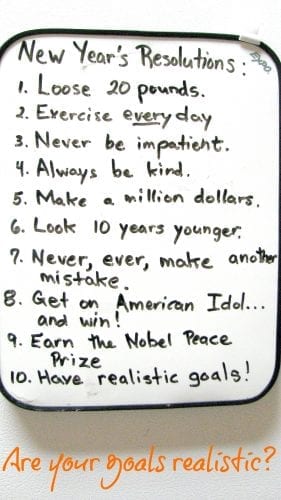 New Year's Resolutions:
Expo
1. Loose 20 pounds.
2. Exercise every day
3. Never be impatient.
4. Always be kind.
5. Make a million dollars.
6. Look 10 years younger.
7. Never, ever, make another
mistake.
8. Get on American Idol...
and win!
9. Earn the Nobel Peace
Prize
10. Have realistic goals!
Are your goals realistic?